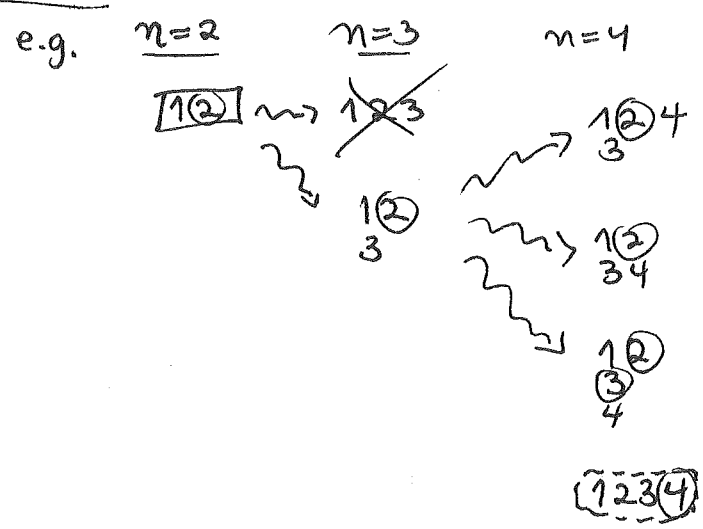 e.g. n=2 n=3 n=4
12 123
12 4
3
12
3
12
34
12
3
4
1234